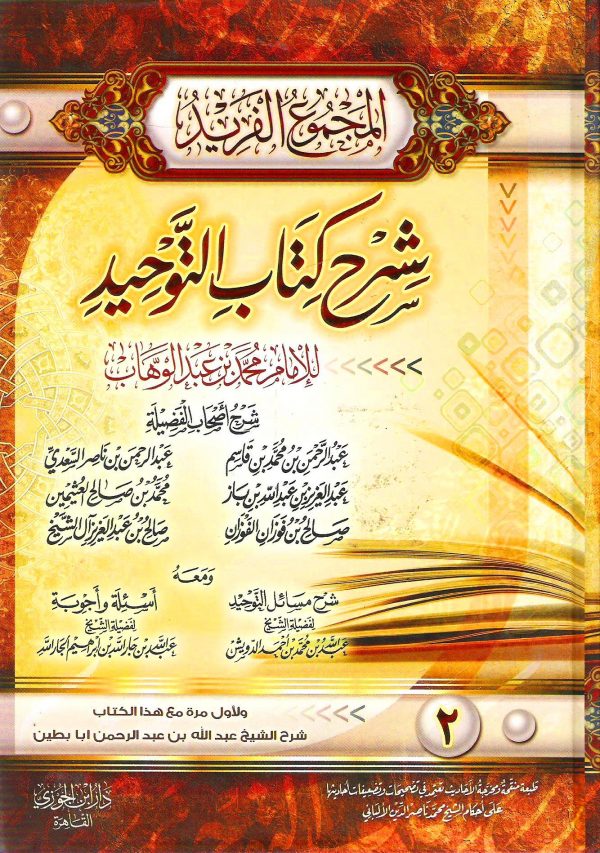 المجموع الفريد
شرح كتاب التوحيد
للإمام محمد بن عبد الوهاب
شرح أصحاب الفضيلة
عبد الرحمن بن محمد بن قاسم عبد الرحمن بن ناصر السعدي
عبد العزيز بن عبد الله بن باز محمد بن صالح العثيمين
صالح بن فوزان الفوزان صالح بن عبد العزيز آل الشيخ
ومعه
شرح مسائل التوحيد أسئلة وأجوبة
لفضيلة الشيخ لفضيلة الشيخ
عبد الله بن محمد بن أحمد الدويش عبد الله بن جار الله بن إبراهيم الجار الله
٢
ولأول مرة مع هذا الكتاب
شرح الشيخ عبد الله بن عبد الرحمن ابا بطين
طبعة منقحة ومخرجة الأحاديث تعتمد في تصحيحات وتضعيفات أحاديثها
على أحكام الشيخ محمد ناصر الدين الألباني
دار ابن الجوزي
القاهرة